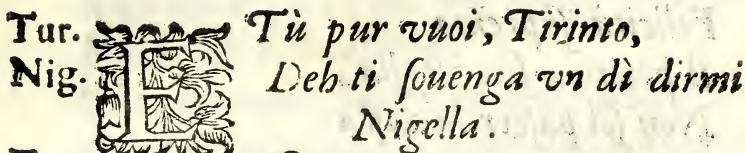 Tur. E Tù pur vuoi, Tirinto,
Nig. Deh ti ſouenga vn dì dirmi
Nigella.